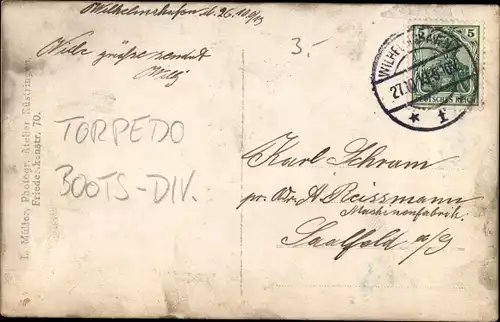 Wilhelmshafen d. 26.10.13
Viele grüße sendet
Willy
3.-
TORPEDO
BOOTS-DIV.
L. Müller, Photogr. Atelier Rüstringen
Friederikenstr. 70.
WILHELMSHAVEN
27.10.13
* f
5 5
DEUTSCHES REICH
Karl Schram
pr. Adr. A. Reissmann
Maschinenfabrik
Saalfeld a/S